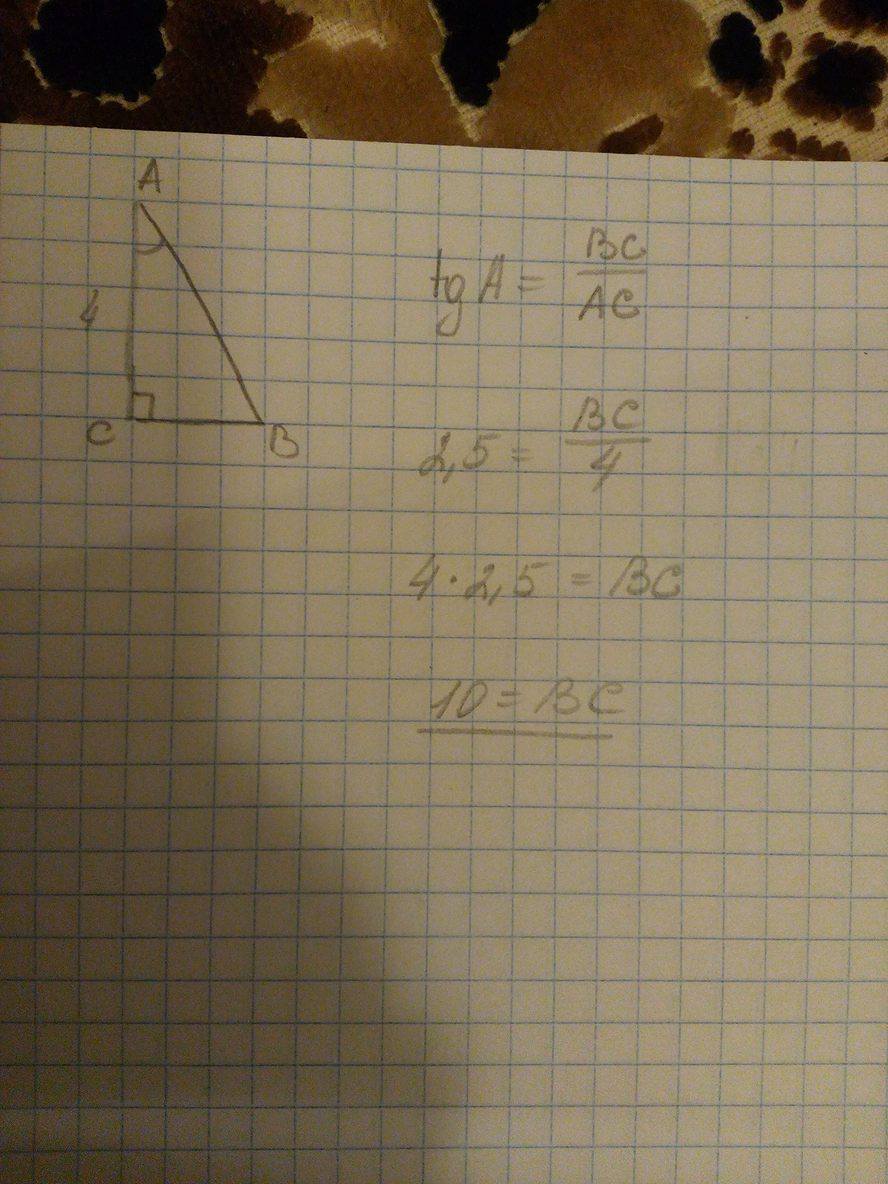 A
4
C
B
tg A = BC/AC
2,5 = BC/4
4 · 2,5 = BC
10 = BC